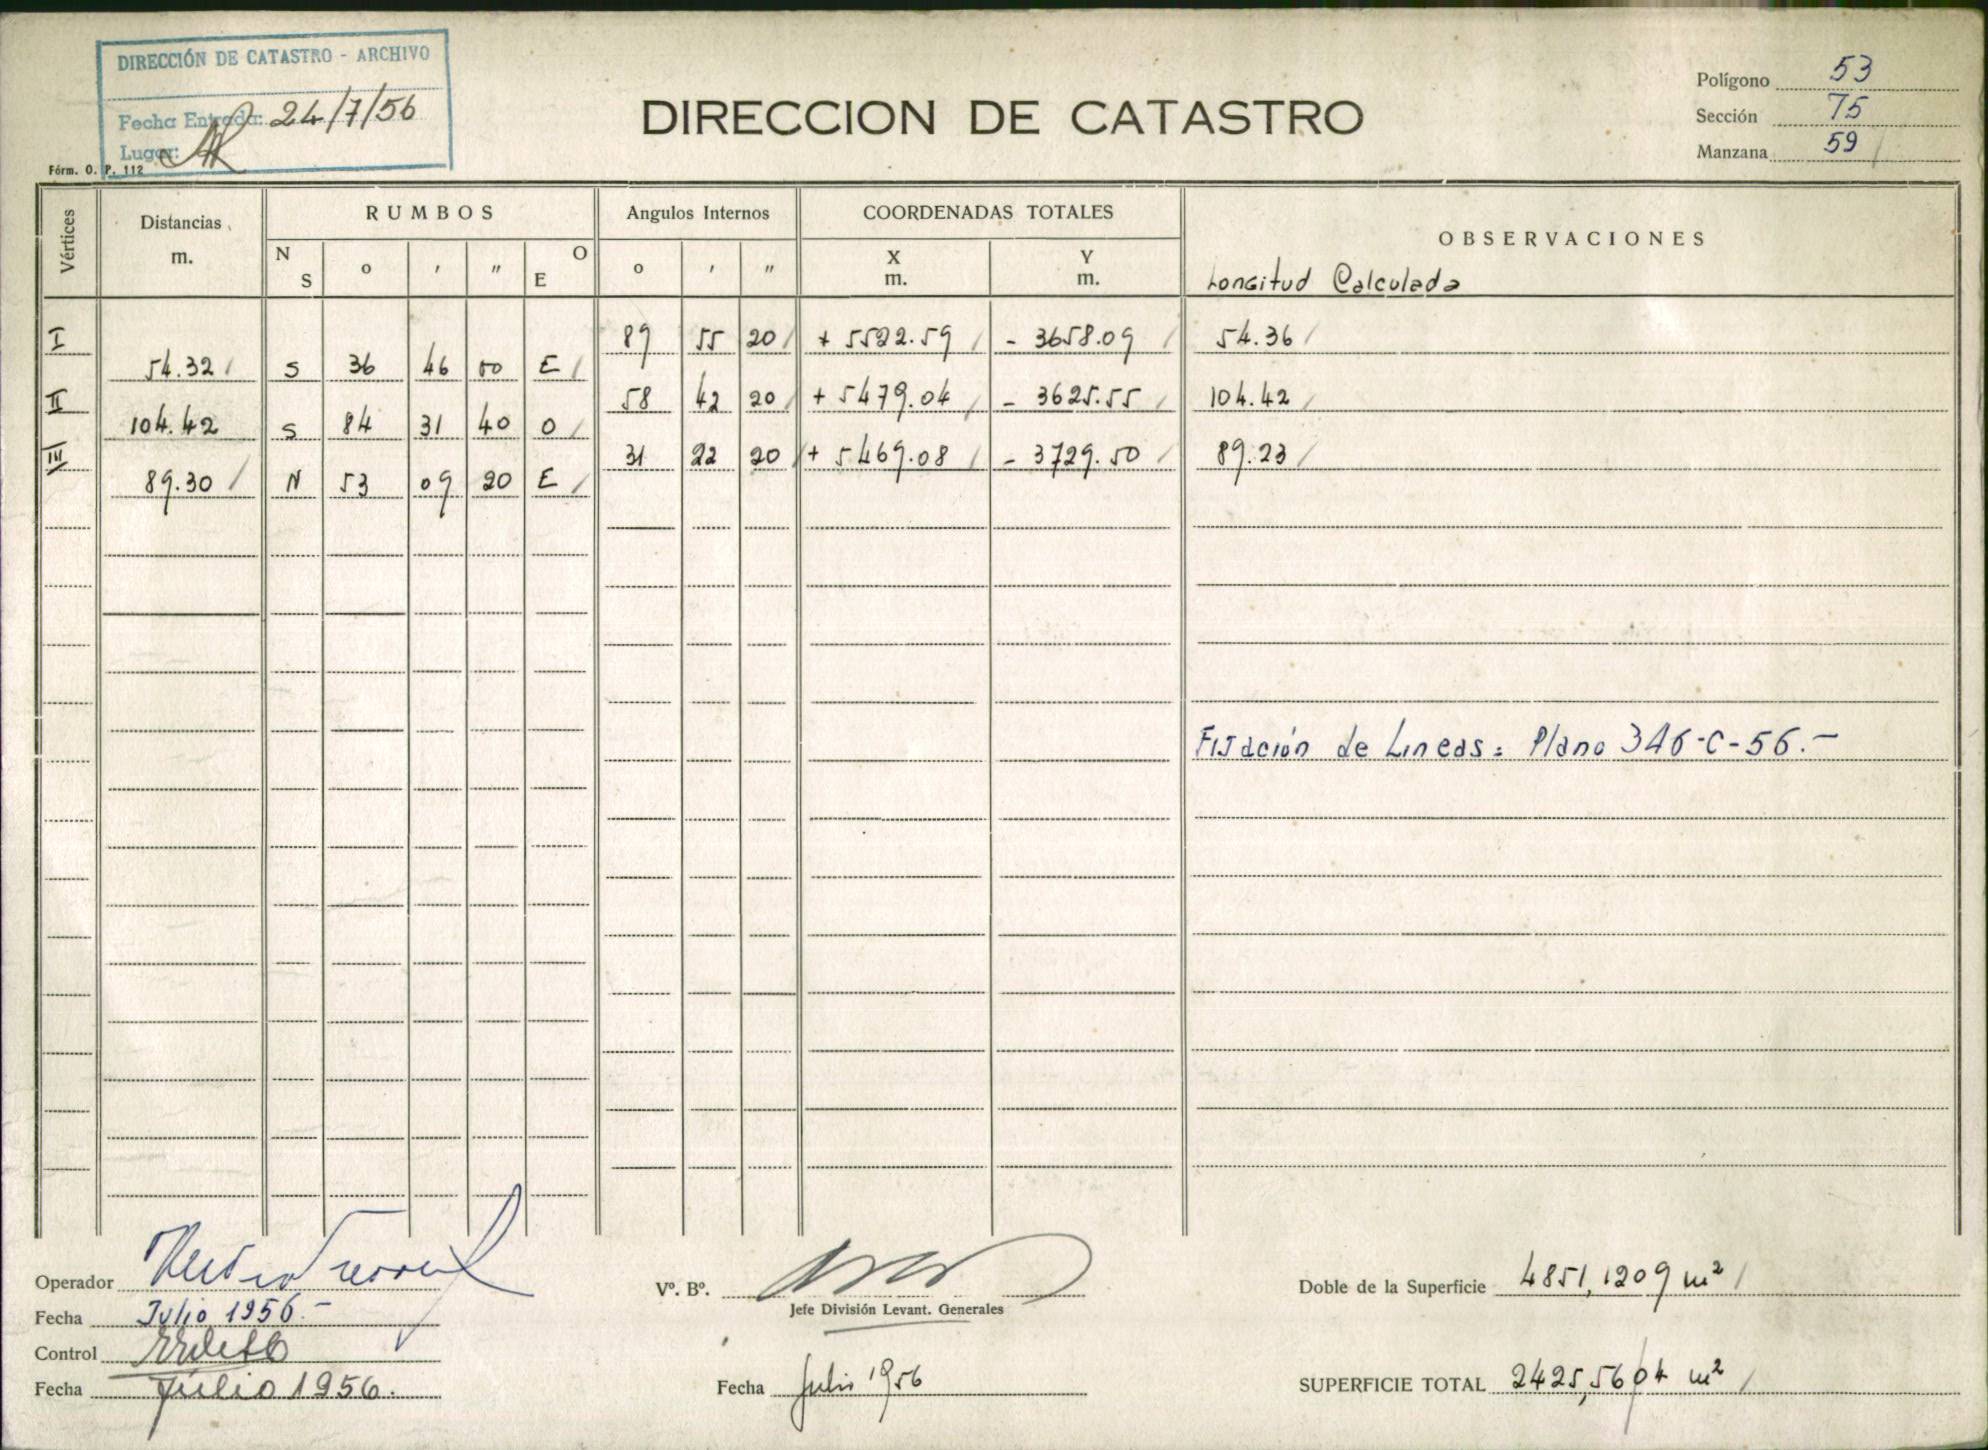 DIRECCIÓN DE CATASTRO - ARCHIVO
Fecha Entrada: 24/7/56
Lugar:
Fórm. O. P. 112
DIRECCION DE CATASTRO
Polígono 53
Sección 75
Manzana 59
Vértices
Distancias m.
RUMBOS
N S o ′ ″ O E
Angulos Internos
o ′ ″
COORDENADAS TOTALES
X m. Y m.
OBSERVACIONES
Longitud Calculada
I 89 55 20 + 5522.59 - 3658.09 54.36
54.32 S 36 46 00 E
II 58 42 20 + 5479.04 - 3625.55 104.42
104.42 S 84 31 40 O
III 31 22 20 + 5469.08 - 3729.50 89.23
89.30 N 53 09 20 E
Fijación de Lineas: Plano 346-C-56.-
Operador
Fecha Julio 1956.-
Control
Fecha Julio 1956.
Vº. Bº.
Jefe División Levant. Generales
Fecha Julio 1956
Doble de la Superficie 4851,1209 m²
SUPERFICIE TOTAL 2425,5604 m²